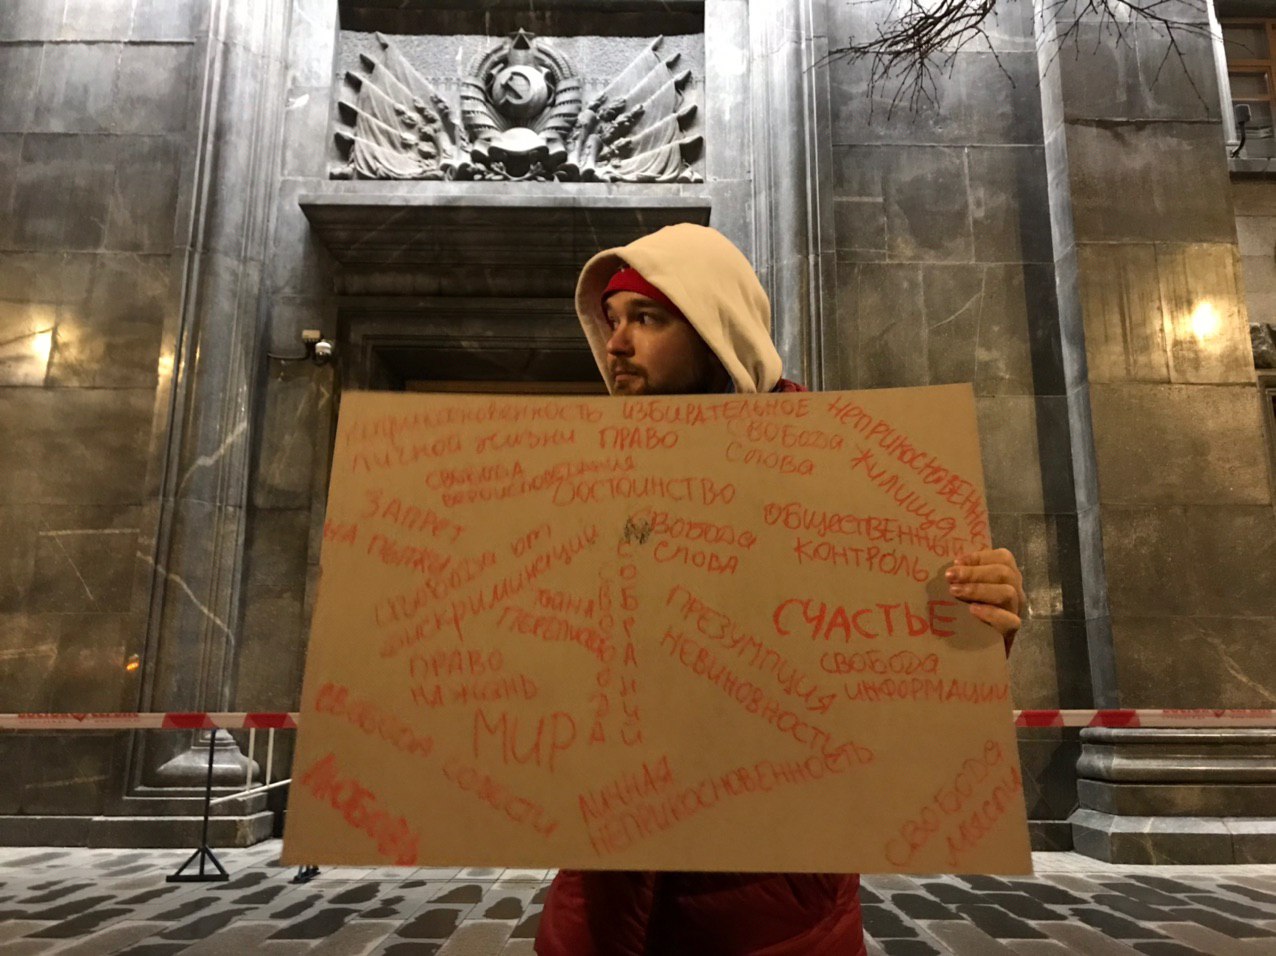 неприкосновенность
личной жизни
ИЗБИРАТЕЛЬНОЕ
ПРАВО
СВОБОДА
СЛОВА
НЕПРИКОСНОВЕННОСТЬ
ЖИЛИЩА
СВОБОДА
ВЕРОИСПОВЕДАНИЯ
ДОСТОИНСТВО
ЗАПРЕТ
НА ПЫТКИ
СВОБОДА
СЛОВА
ОБЩЕСТВЕННЫЙ
КОНТРОЛЬ
Свобода от
дискриминации
тайна
переписки
СВОБОДА
СОБРАНИЙ
ПРЕЗУМПЦИЯ
НЕВИНОВНОСТИ
СЧАСТЬЕ
СВОБОДА
ИНФОРМАЦИИ
ПРАВО
НА ЖИЗНЬ
МИР
СВОБОДА
СОВЕСТИ
ЛЮБОВЬ
ЛИЧНАЯ
НЕПРИКОСНОВЕННОСТЬ
СВОБОДА
МЫСЛИ